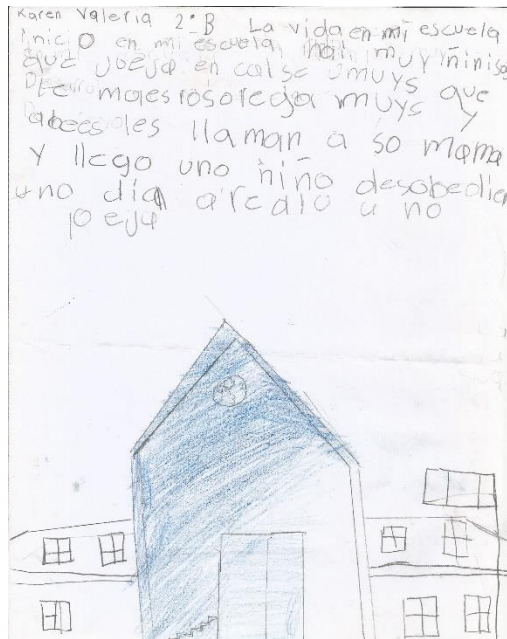 Karen Valeria 2°B La vida en mi escuela
inicio en mi escuela han muy niniso
que jueja en calse umuys
te maesrosoregja muys que y
abeces les llaman a so mama
y llego uno niño desobedien
uno dia arcalo u no
peja